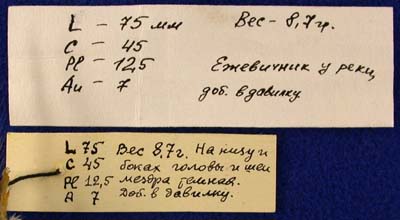 L – 75 мм Вес – 8,7 г.
C – 45
Pl – 12,5 Ежевичник у реки,
Au – 7 доб. в давилку
L 75 Вес 8,7г. На низу и
C 45 боках головы и шеи
Pl 12,5 мездра темная.
A 7 Доб. в давилку.